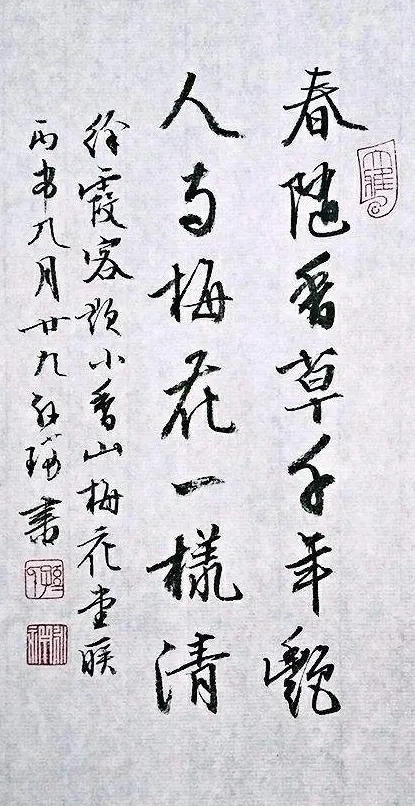 春随香草千年艷
人与梅花一樣清
徐霞客题小香山梅花堂联
丙申九月廿九書